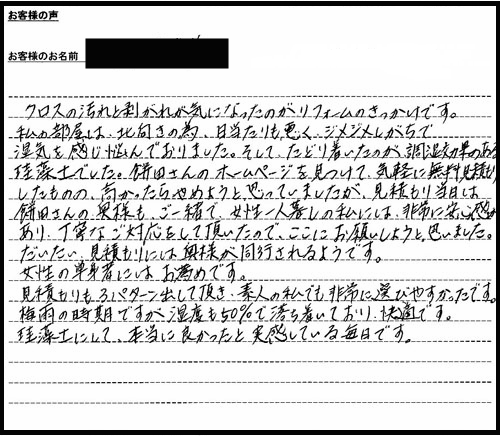 お客様の声
お客様のお名前
クロスの汚れと剥がれが気になったのがリフォームのきっかけです。
私の部屋は、北向きの為、日当たりも悪く、ジメジメしがちで
湿気を感じ悩んでおりました。そして、たどり着いたのが、調湿効果のある
珪藻土でした。餅田さんのホームページを見つけて、気軽に無料見積もり
したものの、高かったらやめようと思っていましたが、見積もり当日は
餅田さんの奥様も、ご一緒で、女性一人暮しの私には、非常に安心感が
あり、丁寧なご対応をして頂いたので、ここにお願いしようと思いました。
だいたい、見積もりには奥様が同行されるようです。
女性の単身者にはお薦めです。
見積もりも、3パターン出して頂き、素人の私でも非常に選びやすかったです。
梅雨の時期ですが、湿度も50%で落ち着いており、快適です。
珪藻土にして、本当に良かったと実感している毎日です。